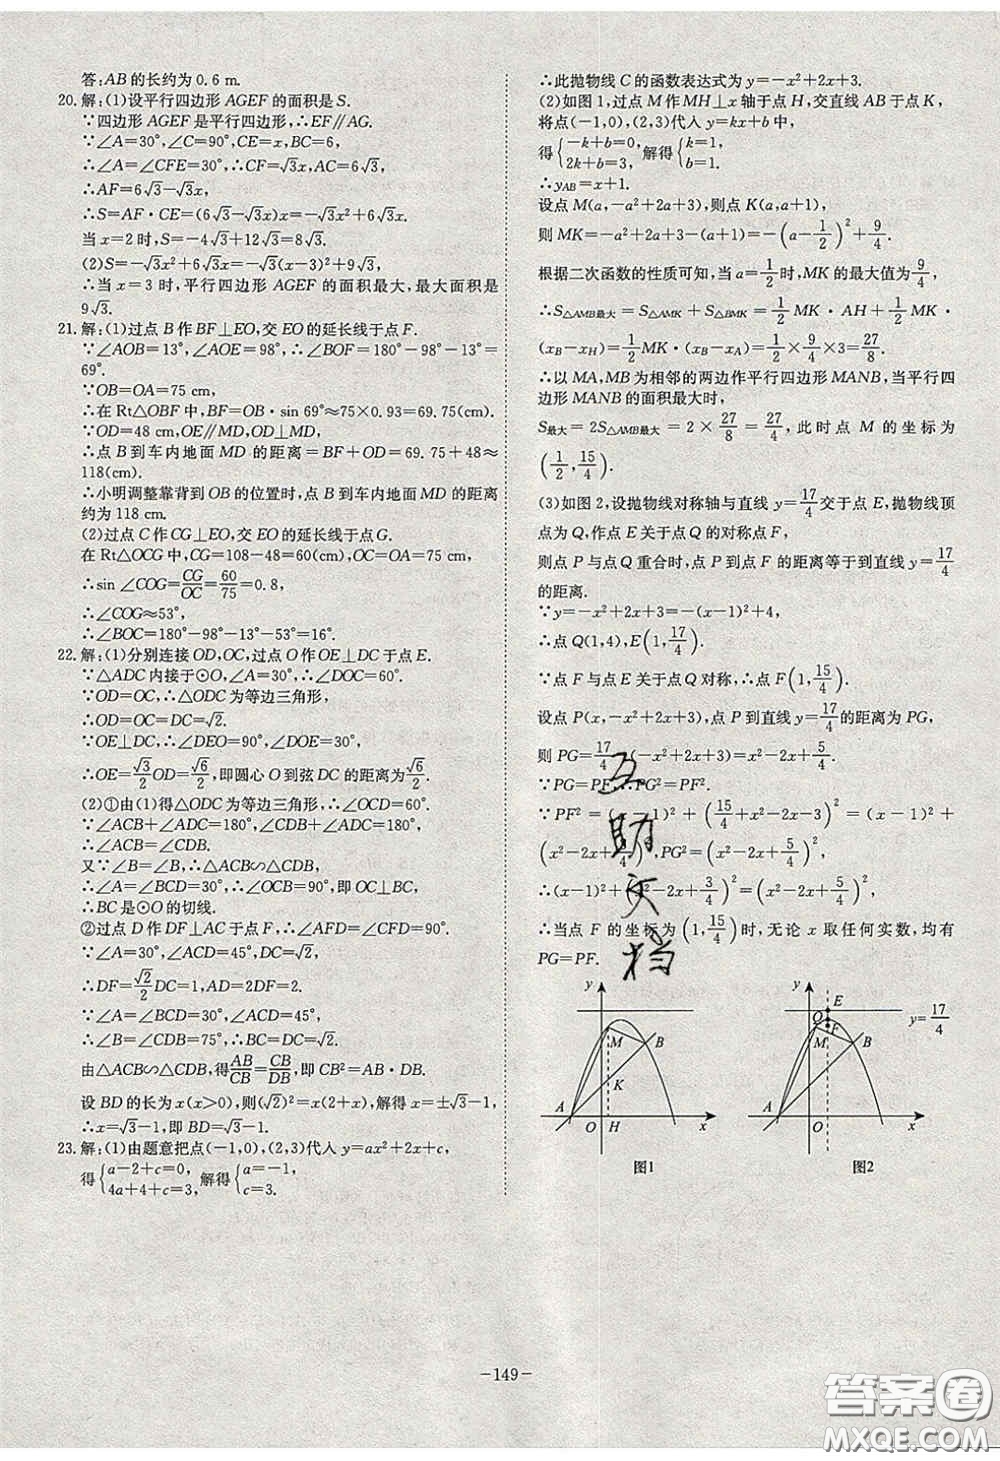 答:AB的长约为0.6 m.
20.解:(1)设平行四边形AGEF的面积是S.
∵四边形AGEF是平行四边形,∴EF∥AG.
∵∠A=30°,∠C=90°,CE=x,BC=6,
∴∠A=∠CFE=30°,∴CF=√3x,AC=6√3,
∴AF=6√3-√3x,
∴S=AF·CE=(6√3-√3x)x=-√3x²+6√3x.
当x=2时,S=-4√3+12√3=8√3.
(2)S=-√3x²+6√3x=-√3(x-3)²+9√3,
∴当x=3时,平行四边形AGEF的面积最大,最大面积是
9√3.
21.解:(1)过点B作BF⊥EO,交EO的延长线于点F.
∵∠AOB=13°,∠AOE=98°,∴∠BOF=180°-98°-13°=
69°.
∵OB=OA=75 cm,
∴在Rt△OBF中,BF=OB·sin 69°≈75×0.93=69.75(cm).
∵OD=48 cm,OE∥MD,OD⊥MD,
∴点B到车内地面MD的距离=BF+OD=69.75+48≈
118(cm).
∴小明调整靠背到OB的位置时,点B到车内地面MD的距离
约为118 cm.
(2)过点C作CG⊥EO,交EO的延长线于点G.
在Rt△OCG中,CG=108-48=60(cm),OC=OA=75 cm,
∴sin∠COG=CG/OC=60/75=0.8,
∴∠COG≈53°,
∴∠BOC=180°-98°-13°-53°=16°.
22.解:(1)分别连接OD,OC,过点O作OE⊥DC于点E.
∵△ADC内接于⊙O,∠A=30°,∴∠DOC=60°.
∵OD=OC,∴△ODC为等边三角形,
∴OD=OC=DC=√2.
∵OE⊥DC,∴∠DEO=90°,∠DOE=30°,
∴OE=√3/2OD=√6/2,即圆心O到弦DC的距离为√6/2.
(2)①由(1)得△ODC为等边三角形,∴∠OCD=60°.
∵∠ACB+∠ADC=180°,∠CDB+∠ADC=180°,
∴∠ACB=∠CDB.
又∵∠B=∠B,∴△ACB∽△CDB,
∴∠A=∠BCD=30°,∴∠OCB=90°,即OC⊥BC,
∴BC是⊙O的切线.
②过点D作DF⊥AC于点F,∴∠AFD=∠CFD=90°.
∵∠A=30°,∠ACD=45°,DC=√2,
∴DF=√2/2DC=1,AD=2DF=2.
∵∠A=∠BCD=30°,∠ACD=45°,
∴∠B=∠BCA=75°,∴AB=AC.
由△ACB∽△CDB,得AB/CB=CB/DB,即CB²=AB·DB.
设BD的长为x(x>0),则(√2)²=x(2+x),解得x=±√3-1,
∴x=√3-1,即BD=√3-1.
23.解:(1)由题意把点(-1,0),(2,3)代入y=ax²+2x+c,
得{a-2+c=0, 4a+4+c=3, 解得{a=-1, c=3.
∴此抛物线C的函数表达式为y=-x²+2x+3.
(2)如图1,过点M作MH⊥x轴于点H,交直线AB于点K,
将点(-1,0),(2,3)代入y=kx+b中,
得{-k+b=0, 2k+b=3, 解得{k=1, b=1.
∴yAB=x+1.
设点M(a,-a²+2a+3),则点K(a,a+1),
则MK=-a²+2a+3-(a+1)=-(a-1/2)²+9/4.
根据二次函数的性质可知,当a=1/2时,MK的最大值为9/4,
∴S△AMB最大=S△AMK+S△BMK=1/2MK·AH+1/2MK·
(xB-xH)=1/2MK·(xB-xA)=1/2×9/4×3=27/8.
∴以MA,MB为相邻的两边作平行四边形MANB,当平行四
边形MANB的面积最大时,
S最大=2S△AMB最大=2×27/8=27/4,此时点M的坐标为
(1/2,15/4).
(3)如图2,设抛物线对称轴与直线y=17/4交于点E,抛物线顶
点为Q,作点E关于点Q的对称点F,
则点P与点Q重合时,点P到点F的距离等于到直线y=17/4
的距离.
∵y=-x²+2x+3=-(x-1)²+4,
∴点Q(1,4),E(1,17/4).
∵点F与点E关于点Q对称,∴点F(1,15/4).
设点P(x,-x²+2x+3),点P到直线y=17/4的距离为PG,
则PG=17/4-(-x²+2x+3)=x²-2x+5/4.
∵PG=PF,∴PG²=PF².
∵PF²=(x-1)²+(15/4+x²-2x-3)²=(x-1)²+
(x²-2x+3/4)²,PG²=(x²-2x+5/4)²,
∴(x-1)²+(x²-2x+3/4)²=(x²-2x+5/4)²,
∴当点F的坐标为(1,15/4)时,无论x取任何实数,均有
PG=PF.
互助文档
y
M
B
K
A
O
H
x
图1
y
E
Q
F
y=17/4
M
B
A
O
x
图2
-149-
答案圈
MXQE.COM